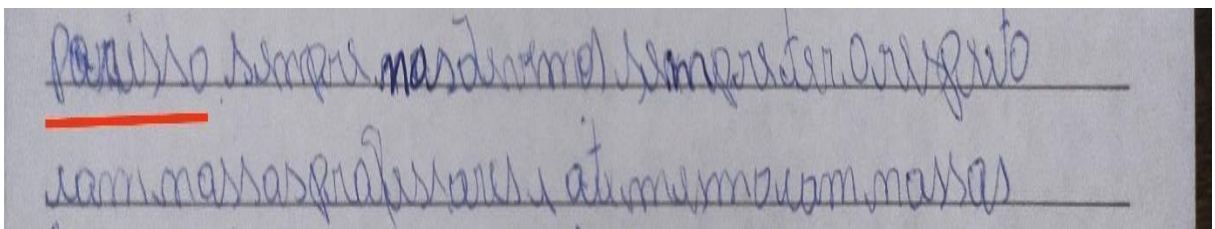 porisso sempre nós devemos sempre ter o respeito
com nossos professores, até mesmo com nossos